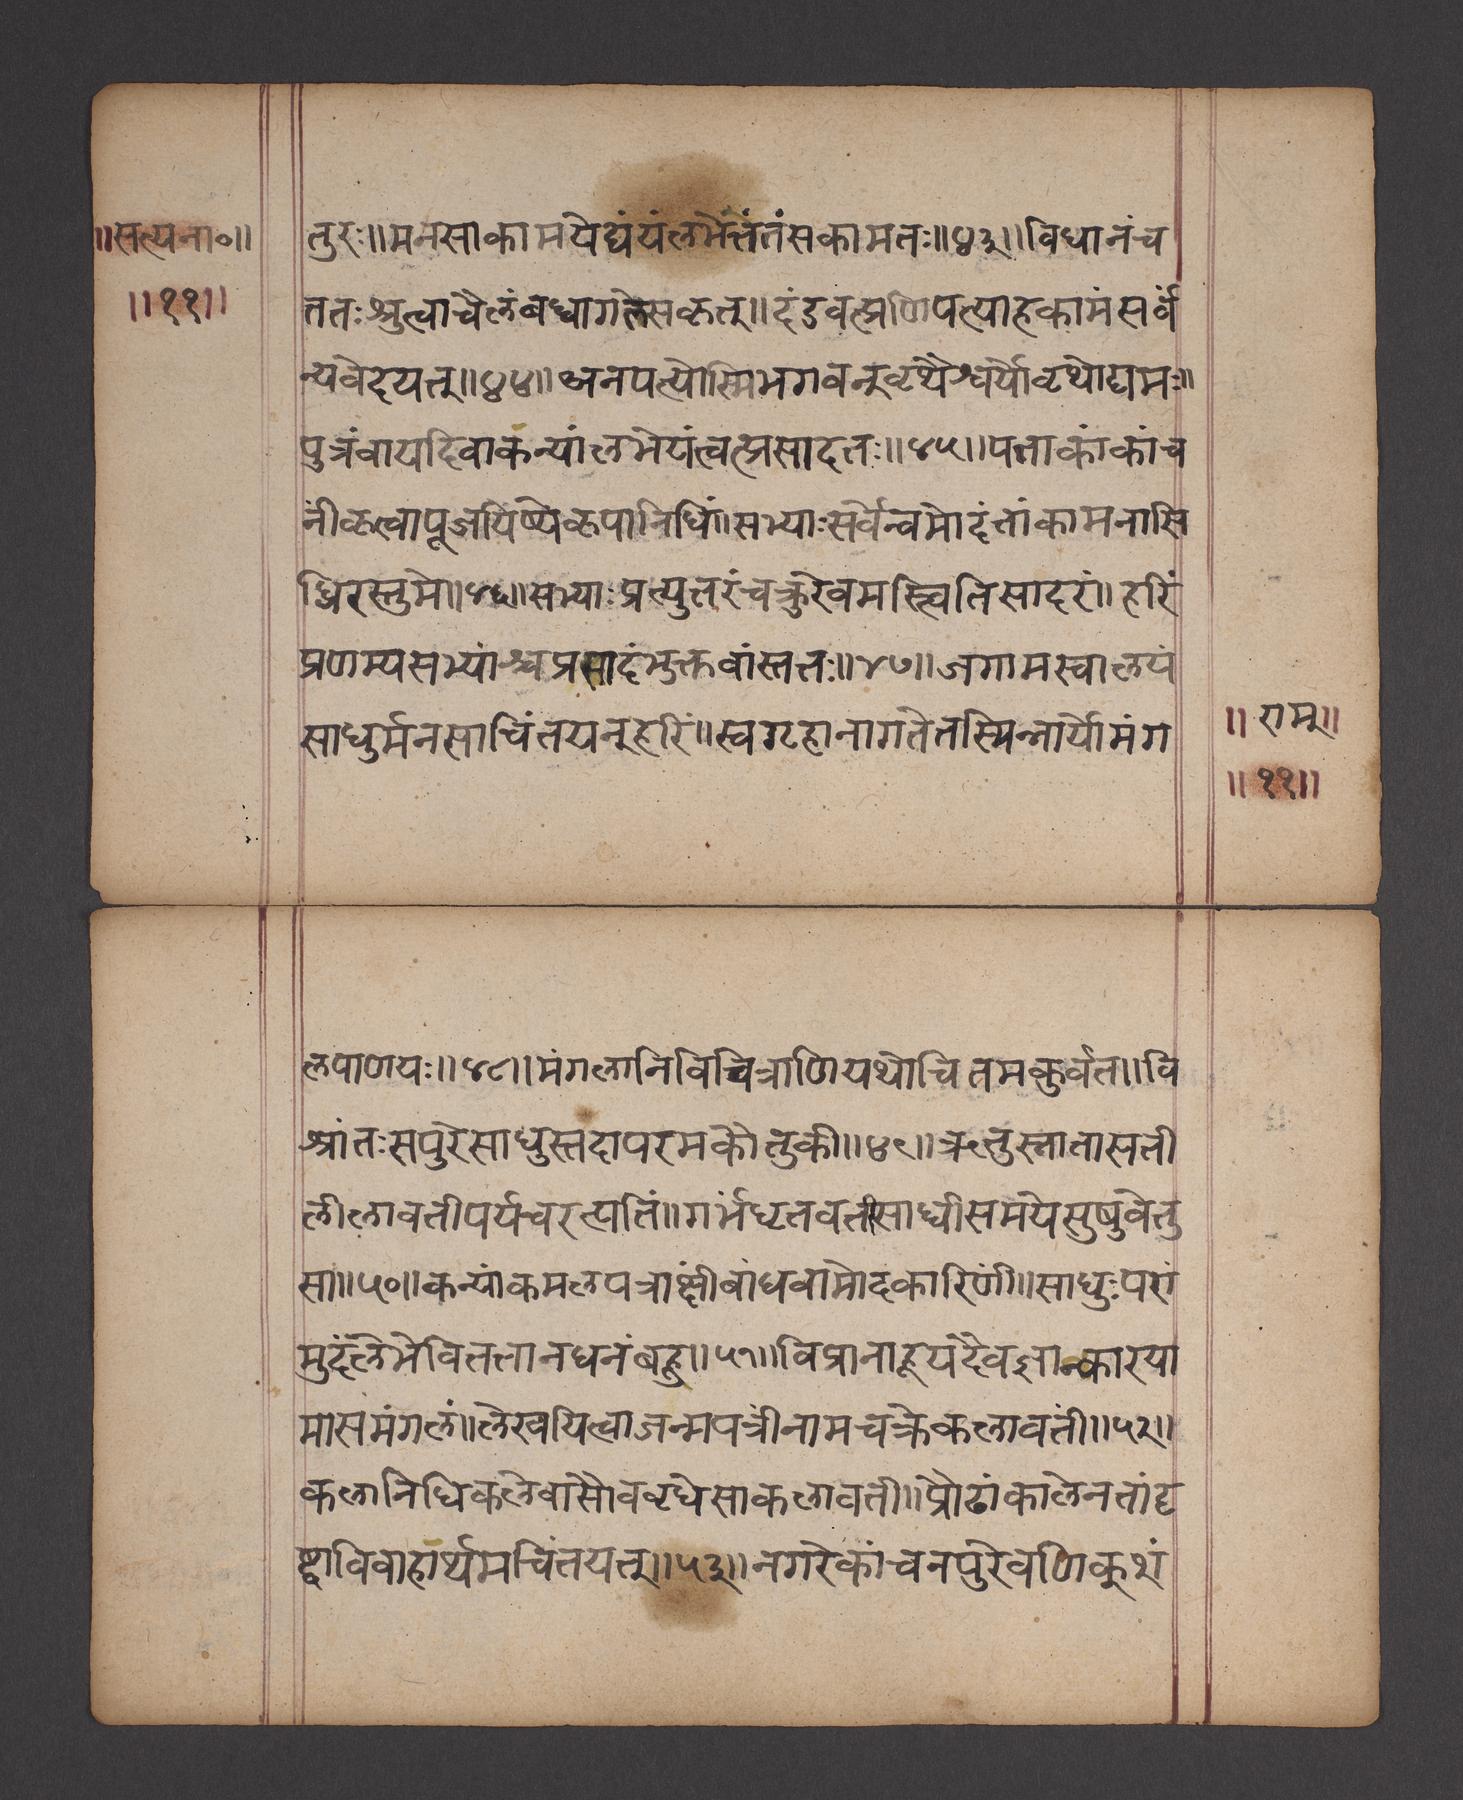 ॥सत्यना०॥
॥११॥
तुरः॥मनसाकामयेद्यंयंलभेत्तंतंसकामतः॥४३॥विधानंच
ततःश्रुत्वाचैलंबध्वागलेसकृत्॥दंडवत्प्रणिपत्याहकामंसर्वं
न्यवेदयत्॥४४॥अनपत्योस्मिभगवन्वृथैश्वर्योवृथोद्यमः॥
पुत्रंवायदिवाकन्यांलभेयंत्वत्प्रसादतः॥४५॥पताकांकांच
नींकृत्वापूजयिष्येकृपानिधिं॥सभ्याःसर्वेन्वमोदंतांकामनासि
द्धिरस्तुमे॥४६॥सभ्याःप्रत्युत्तरंचक्रुरेवमस्त्वितिसादरं॥हरिं
प्रणम्यसभ्यांश्चप्रसादंभुक्तवांस्ततः॥४७॥जगामस्वालयं
साधुर्मनसाचिंतयन्हरिं॥स्वगृहानागतेतस्मिन्नार्योमंग
॥राम्॥
॥११॥
लपाणयः॥४८॥मंगलानिविचित्राणियथोचितमकुर्वत॥वि
श्रांतःसपुरेसाधुस्तदापरमकौतुकी॥४९॥ऋतुस्नातासती
लीलावतीपर्यचरत्पतिं॥गर्भंधृतवतीसाध्वीसमयेसुषुवेतु
सा॥५०॥कन्यांकमलपत्राक्षींबांधवामोदकारिणीं॥साधुःपरां
मुदंलेभेविततानधनंबहु॥५१॥विप्रानाहूयदैवज्ञान्कारया
मासमंगलं॥लेखयित्वाजन्मपत्रींनामचक्रेकलावतीं॥५२॥
कलानिधिकलेवासौववृधेसाकलावती॥प्रौढांकालेनतांदृ
ष्ट्वाविवाहार्थमचिंतयत्॥५३॥नगरेकांचनपुरेवणिक्शं